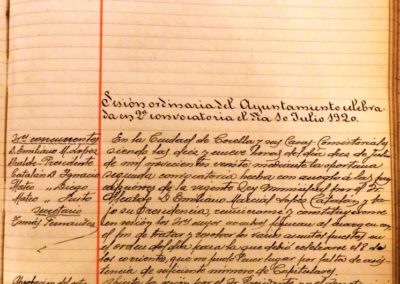 Sesión ordinaria del Ayuntamiento celebra
da en 2ª convocatoria el día 10 Julio 1920.
Sres concurrentes
D. Emiliano M. Lopez
Alcalde-Presidente
Catalán D. Ignacio
Mateo " Diego
Mateo " Justo
Secretario
Tomás Fernandez
En la Ciudad de Corella y sus Casas Consistoriales
siendo las diez y nueve horas del día diez de Julio
de mil novecientos veinte mediante la oportuna
segunda convocatoria hecha con arreglo á las
de la vigente Ley Municipal por el Sr
Alcalde D. Emiliano Marcial Lopez Catalán y ba
jo su Presidencia, reuniéronse y constituyéronse
en sesión los Srs cuyos nombres al margen con
el fin de tratar y resolver los varios asuntos puestos en
el orden del día para la que debió celebrarse el 8 de
los corrientes, que no pudo tener lugar por falta de asis
tencia de suficiente número de Capitulares.